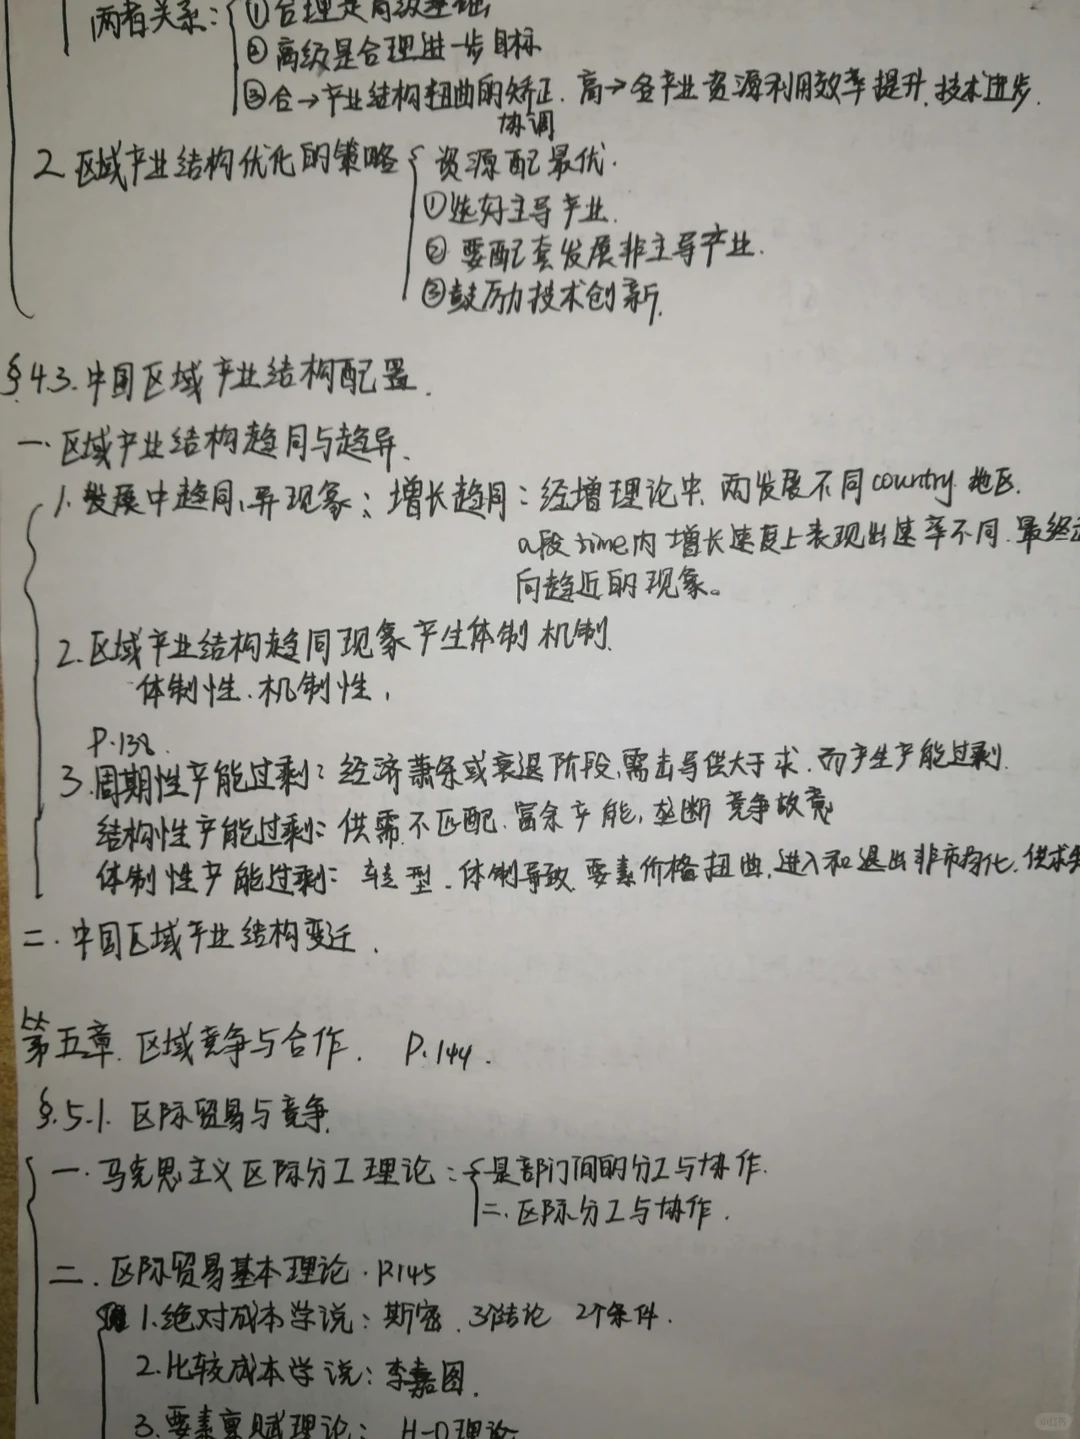 两者关系：①合理是高级基础
②高级是合理进一步目标
③合→产业结构扭曲的矫正．高→各产业资源利用效率提升．技术进步．
协调
2.区域产业结构优化的策略 资源配最优．
①选好主导产业．
②要配套发展非主导产业．
③鼓励技术创新．
§4.3.中国区域产业结构配置．
一．区域产业结构趋同与趋异．
1.发展中趋同、异现象：增长趋同：经增理论中，两发展不同country 地区．
a段time内增长速度上表现出速率不同．最终
向趋近的现象。
2.区域产业结构趋同现象产生体制机制．
体制性．机制性，
P.138.
3.周期性产能过剩：经济萧条或衰退阶段，需求导供大于求．而产生产能过剩．
结构性产能过剩：供需不匹配．富余产能，垄断竞争故意
体制性产能过剩：转型．体制导致．要素价格扭曲，进入和退出非市场化．供求
二．中国区域产业结构变迁．
第五章．区域竞争与合作． P.144．
§.5.1.区际贸易与竞争．
一．马克思主义区际分工理论：一是部门间的分工与协作．
二．区际分工与协作．
二．区际贸易基本理论．P.145
1.绝对成本学说：斯密．3个结论 2个条件．
2.比较成本学说：李嘉图．
3.要素禀赋理论：H-O理论
小红书